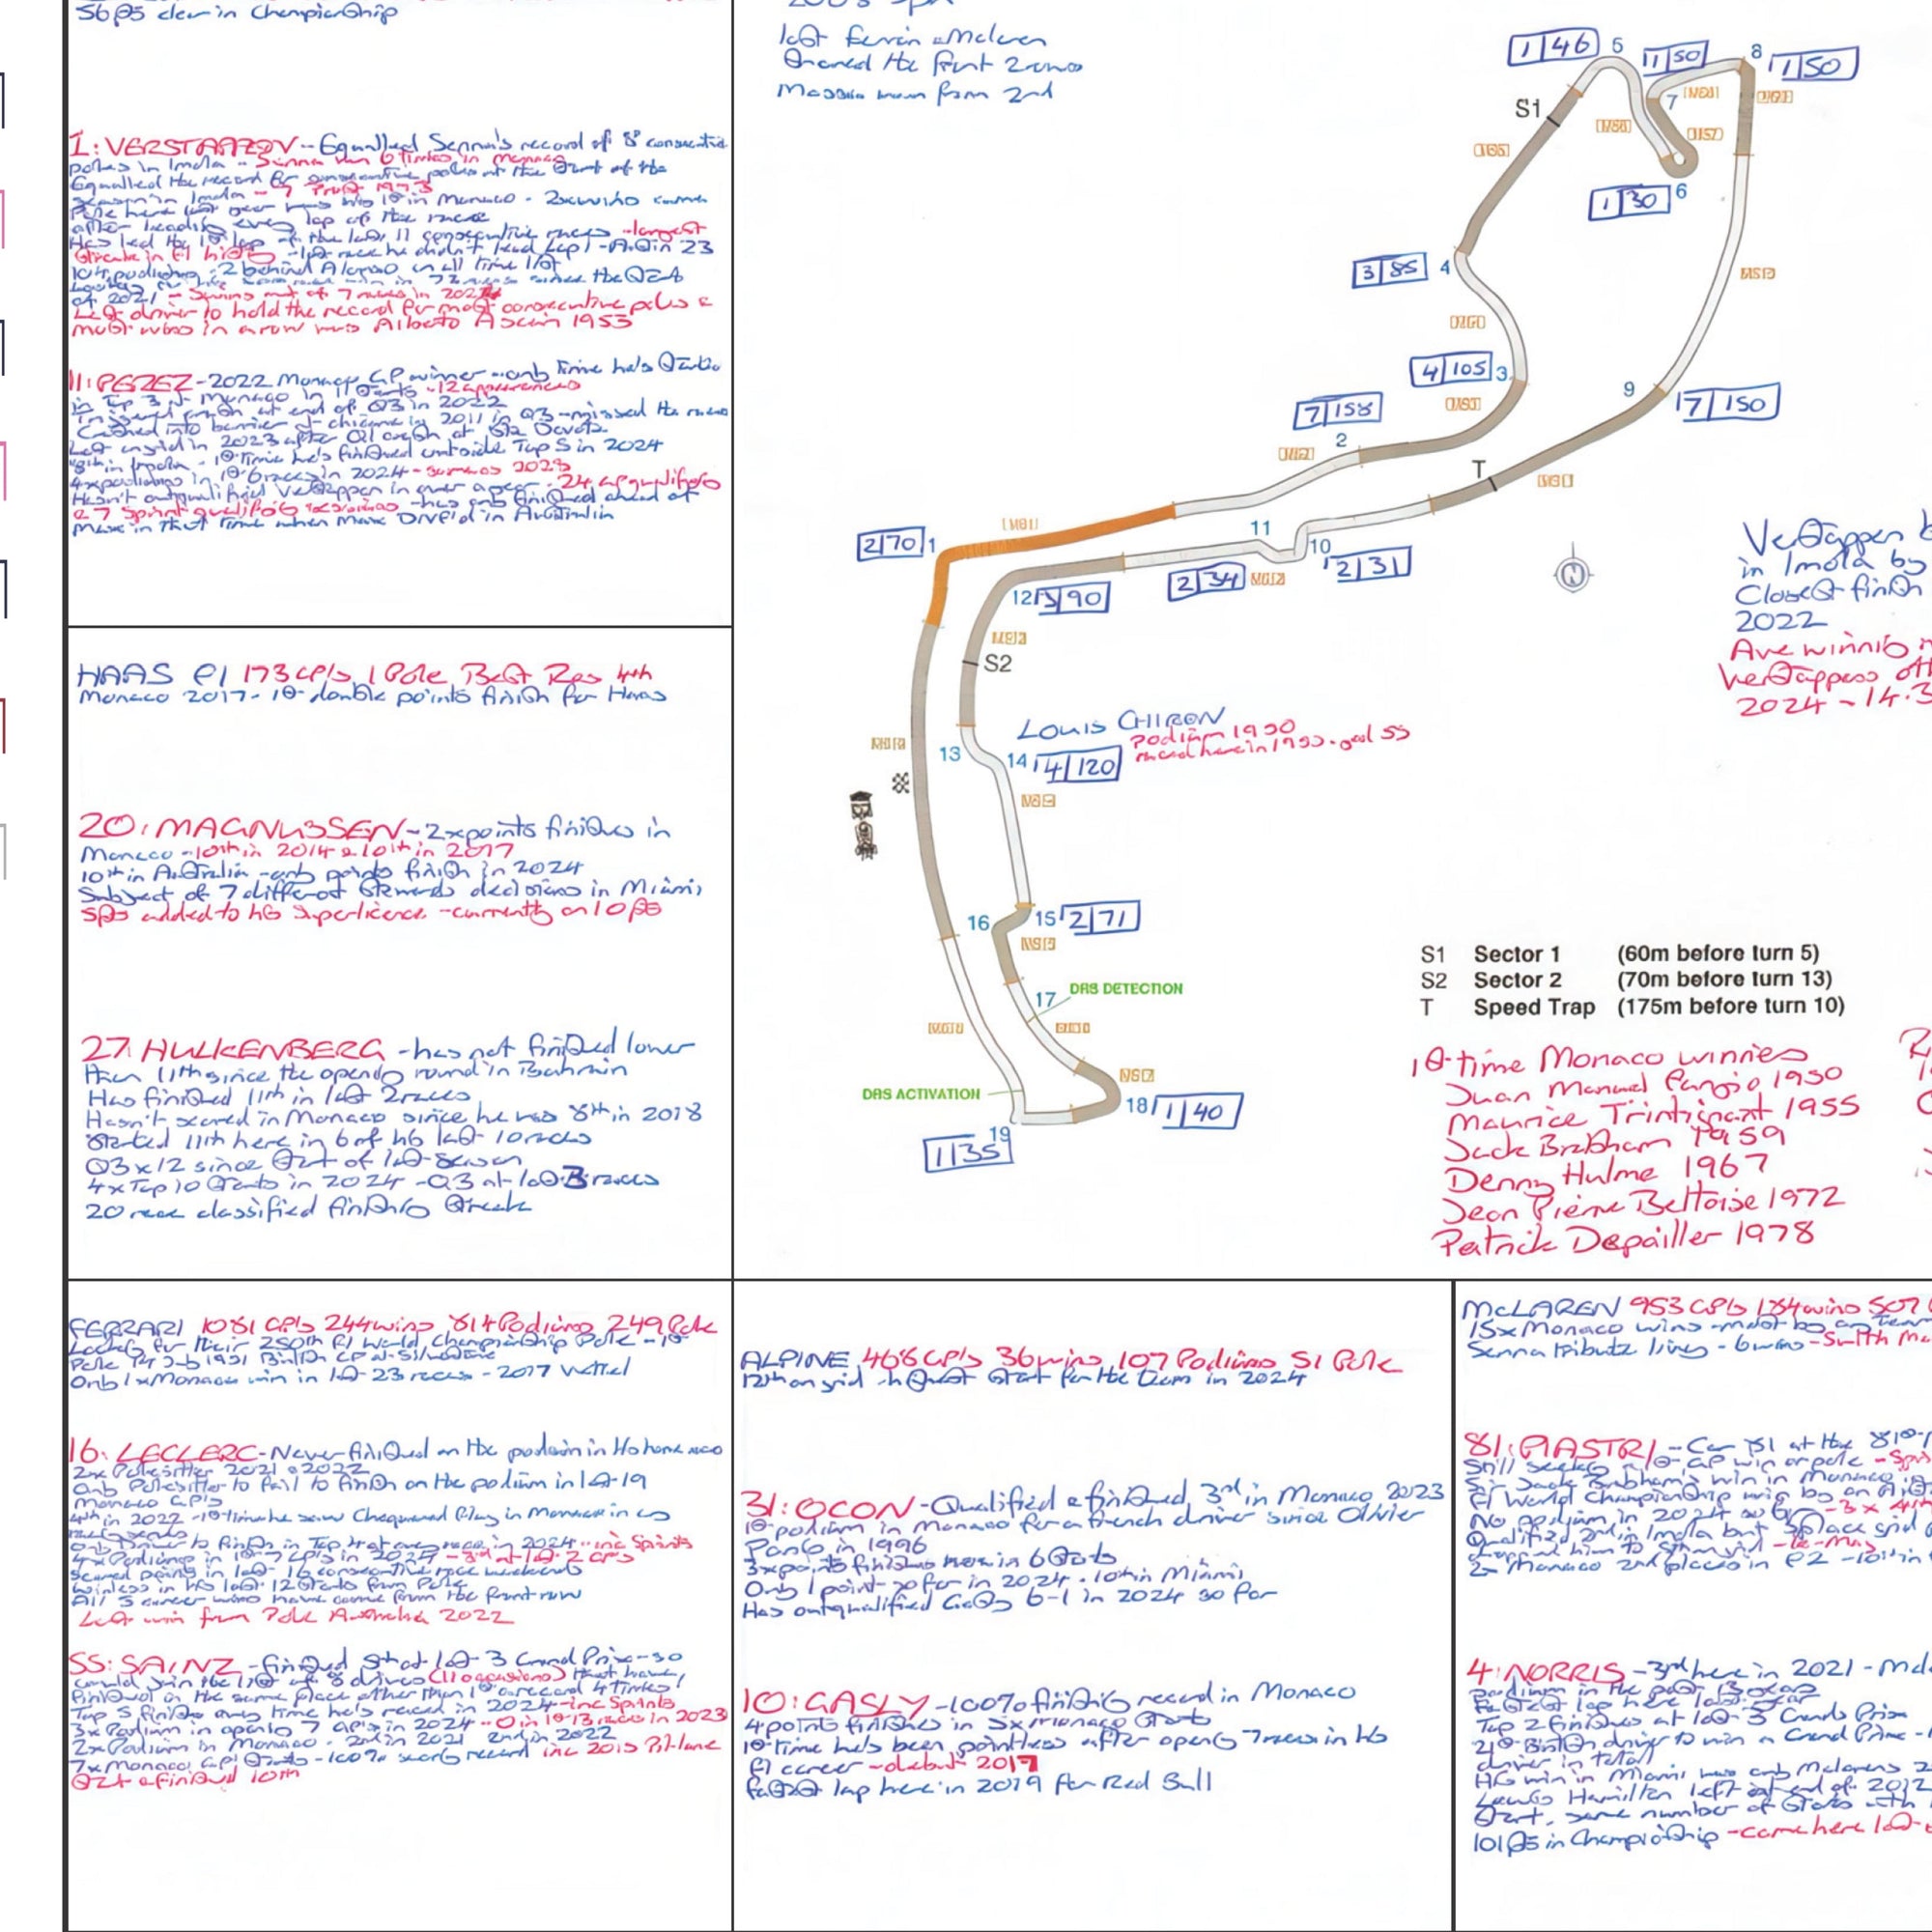 56pts clear in Championship
1: VERSTAPPEN - Equalled Senna's record of 8 consecutive
poles in Imola - Senna won 6 times in Monaco
Equalled the record for consecutive poles at the start of the
season in Imola - 7 Prost 1993
Pole here last year was his 1st in Monaco - 2xwins came
after leading every lap of the race
Has led the 1st lap of the last 11 consecutive races - largest
streak in F1 history - last race he didn't lead Lap 1 - Austin 23
104 podiums - 2 behind Alonso in all time list
of 2021 - Senna out of 7 races in 202
Last driver to hold the record for most consecutive poles &
most wins in a row was Alberto Ascari 1953
11: PEREZ - 2022 Monaco GP winner - only time he's started
in Top 3 in Monaco in 11 starts - 12 appearances
Triggered crash at end of Q3 in 2022
Crashed into barrier at chicane in 2011 in Q3 - missed the race
Last on grid in 2023 after Q1 crash at Ste Devote
8th in Imola - 1st time he's finished outside Top 5 in 2024
4xpodiums in 1st 6 races in 2024 - same as 2023
Hasn't outqualified Verstappen in over a year - 24 GP qualifiers
& 7 Sprint qualifying sessions - has only finished ahead of
Max in that time when Max DNF'd in Australia
HAAS F1 173 GP's 1 Pole Best Res 4th
Monaco 2017 - 1st double points finish for Haas
20: MAGNUSSEN - 2xpoints finishes in
Monaco - 10th in 2014 & 10th in 2017
10th in Australia - only points finish in 2024
Subject of 7 different Stewards decisions in Miami
5pts added to his superlicence - currently on 10pts
27: HULKENBERG - has not finished lower
than 11th since the opening round in Bahrain
Has finished 11th in last 2 races
Hasn't scored in Monaco since he was 8th in 2018
Started 11th here in 6 of his last 10 races
Q3 x 12 since start of last season
4xTop 10 starts in 2024 - Q3 at last 3 races
20 race classified finishing streak
last Ferrari & McLaren
shared the front 2 rows
Massa won from 2nd
1 46 5 1 50 8 1 50
S1
7
1 30 6
3 85 4
4 105 3
7 158 2
9 7 150
T
2 70 1
11
10 2 31
2 34
12 3 90
S2
N
LOUIS CHIRON
podium 1950
raced here in 1955 - aged 55
13
14 4 120
16
15 2 71
17 DRS DETECTION
DRS ACTIVATION
18 1 40
19
1 35
Verstappen
in Imola by
Closest finish
2022
Ave winning
Verstappens
2024 - 14.3
S1 Sector 1 (60m before turn 5)
S2 Sector 2 (70m before turn 13)
T Speed Trap (175m before turn 10)
1st-time Monaco winners
Juan Manuel Fangio 1950
Maurice Trintignant 1955
Jack Brabham 1959
Denny Hulme 1967
Jean Pierre Beltoise 1972
Patrick Depailler 1978
FERRARI 1081 GP's 244 wins 814 Podiums 249 Pole
Looking for their 250th F1 World Championship Pole - 1st
Pole 14 July 1951 British GP at Silverstone
Only 1xMonaco win in last 23 races - 2017 Vettel
16: LECLERC - Never finished on the podium in his home race
2x Polesitter 2021 & 2022
Only Polesitter to fail to finish on the podium in last 19
Monaco GP's
4th in 2022 - 1st time he saw Chequered Flag in Monaco in
Only Driver to finish in Top 4 at every race in 2024 - inc Sprints
4xPodiums in 1st 7 GP's in 2024 - 3rd at last 2 GP's
Scored points in last 16 consecutive race weekends
Winless in his last 12 starts from Pole
All 5 career wins have come from the front row
Last win from Pole Australia 2022
55: SAINZ - finished 5th at last 3 Grand Prix - so
could join the list of 8 drivers (11 occasions) that have
finished in the same place other than 1st on record 4 times
Top 5 finish every time he's raced in 2024 - inc Sprints
3xPodium in opening 7 GP's in 2024 - 0 in 1st 13 races in 2023
2xPodium in Monaco - 2nd in 2021 2nd in 2022
7xMonaco GP starts - 100% scoring record inc 2015 Pit-lane
start & finished 10th
ALPINE 466 GP's 36 wins 107 Podiums 51 Pole
12th on grid highest start for the team in 2024
31: OCON - Qualified & finished 3rd in Monaco 2023
1st podium in Monaco for a French driver since Olivier
Panis in 1996
3xpoints finishes here in 6 starts
Only 1 point so far in 2024 - 10th in Miami
Has outqualified Gasly 6-1 in 2024 so far
10: GASLY - 100% finishing record in Monaco
4 points finishes in 5xMonaco starts
1st time he's been pointless after opening 7 races in his
F1 career - debut 2017
Fastest lap here in 2019 for Red Bull
McLAREN 953 GP's 184 wins 507
15xMonaco wins - most by any team
Senna tribute livery - 6 wins - Smith
81: PIASTRI - Car 81 at the 81st
Still seeking a 1st GP win or pole
Sir Jack Brabham's win in Monaco
F1 World Championship win by an
No podium in 2024 so far - 3x 4th
Qualified 2nd in Imola but 3 place grid
2x Monaco 2nd places in F2 - 10th in
4: NORRIS - 3rd here in 2021
podium in the past 13 years
Fastest lap here last year
Top 2 finishes at last 3 Grands Prix
21st British driver to win a Grand Prix
driver in total
His win in Miami was only McLarens 2
Lewis Hamilton left at end of 2012
start, same number of starts with
101pts in Championship - came here last